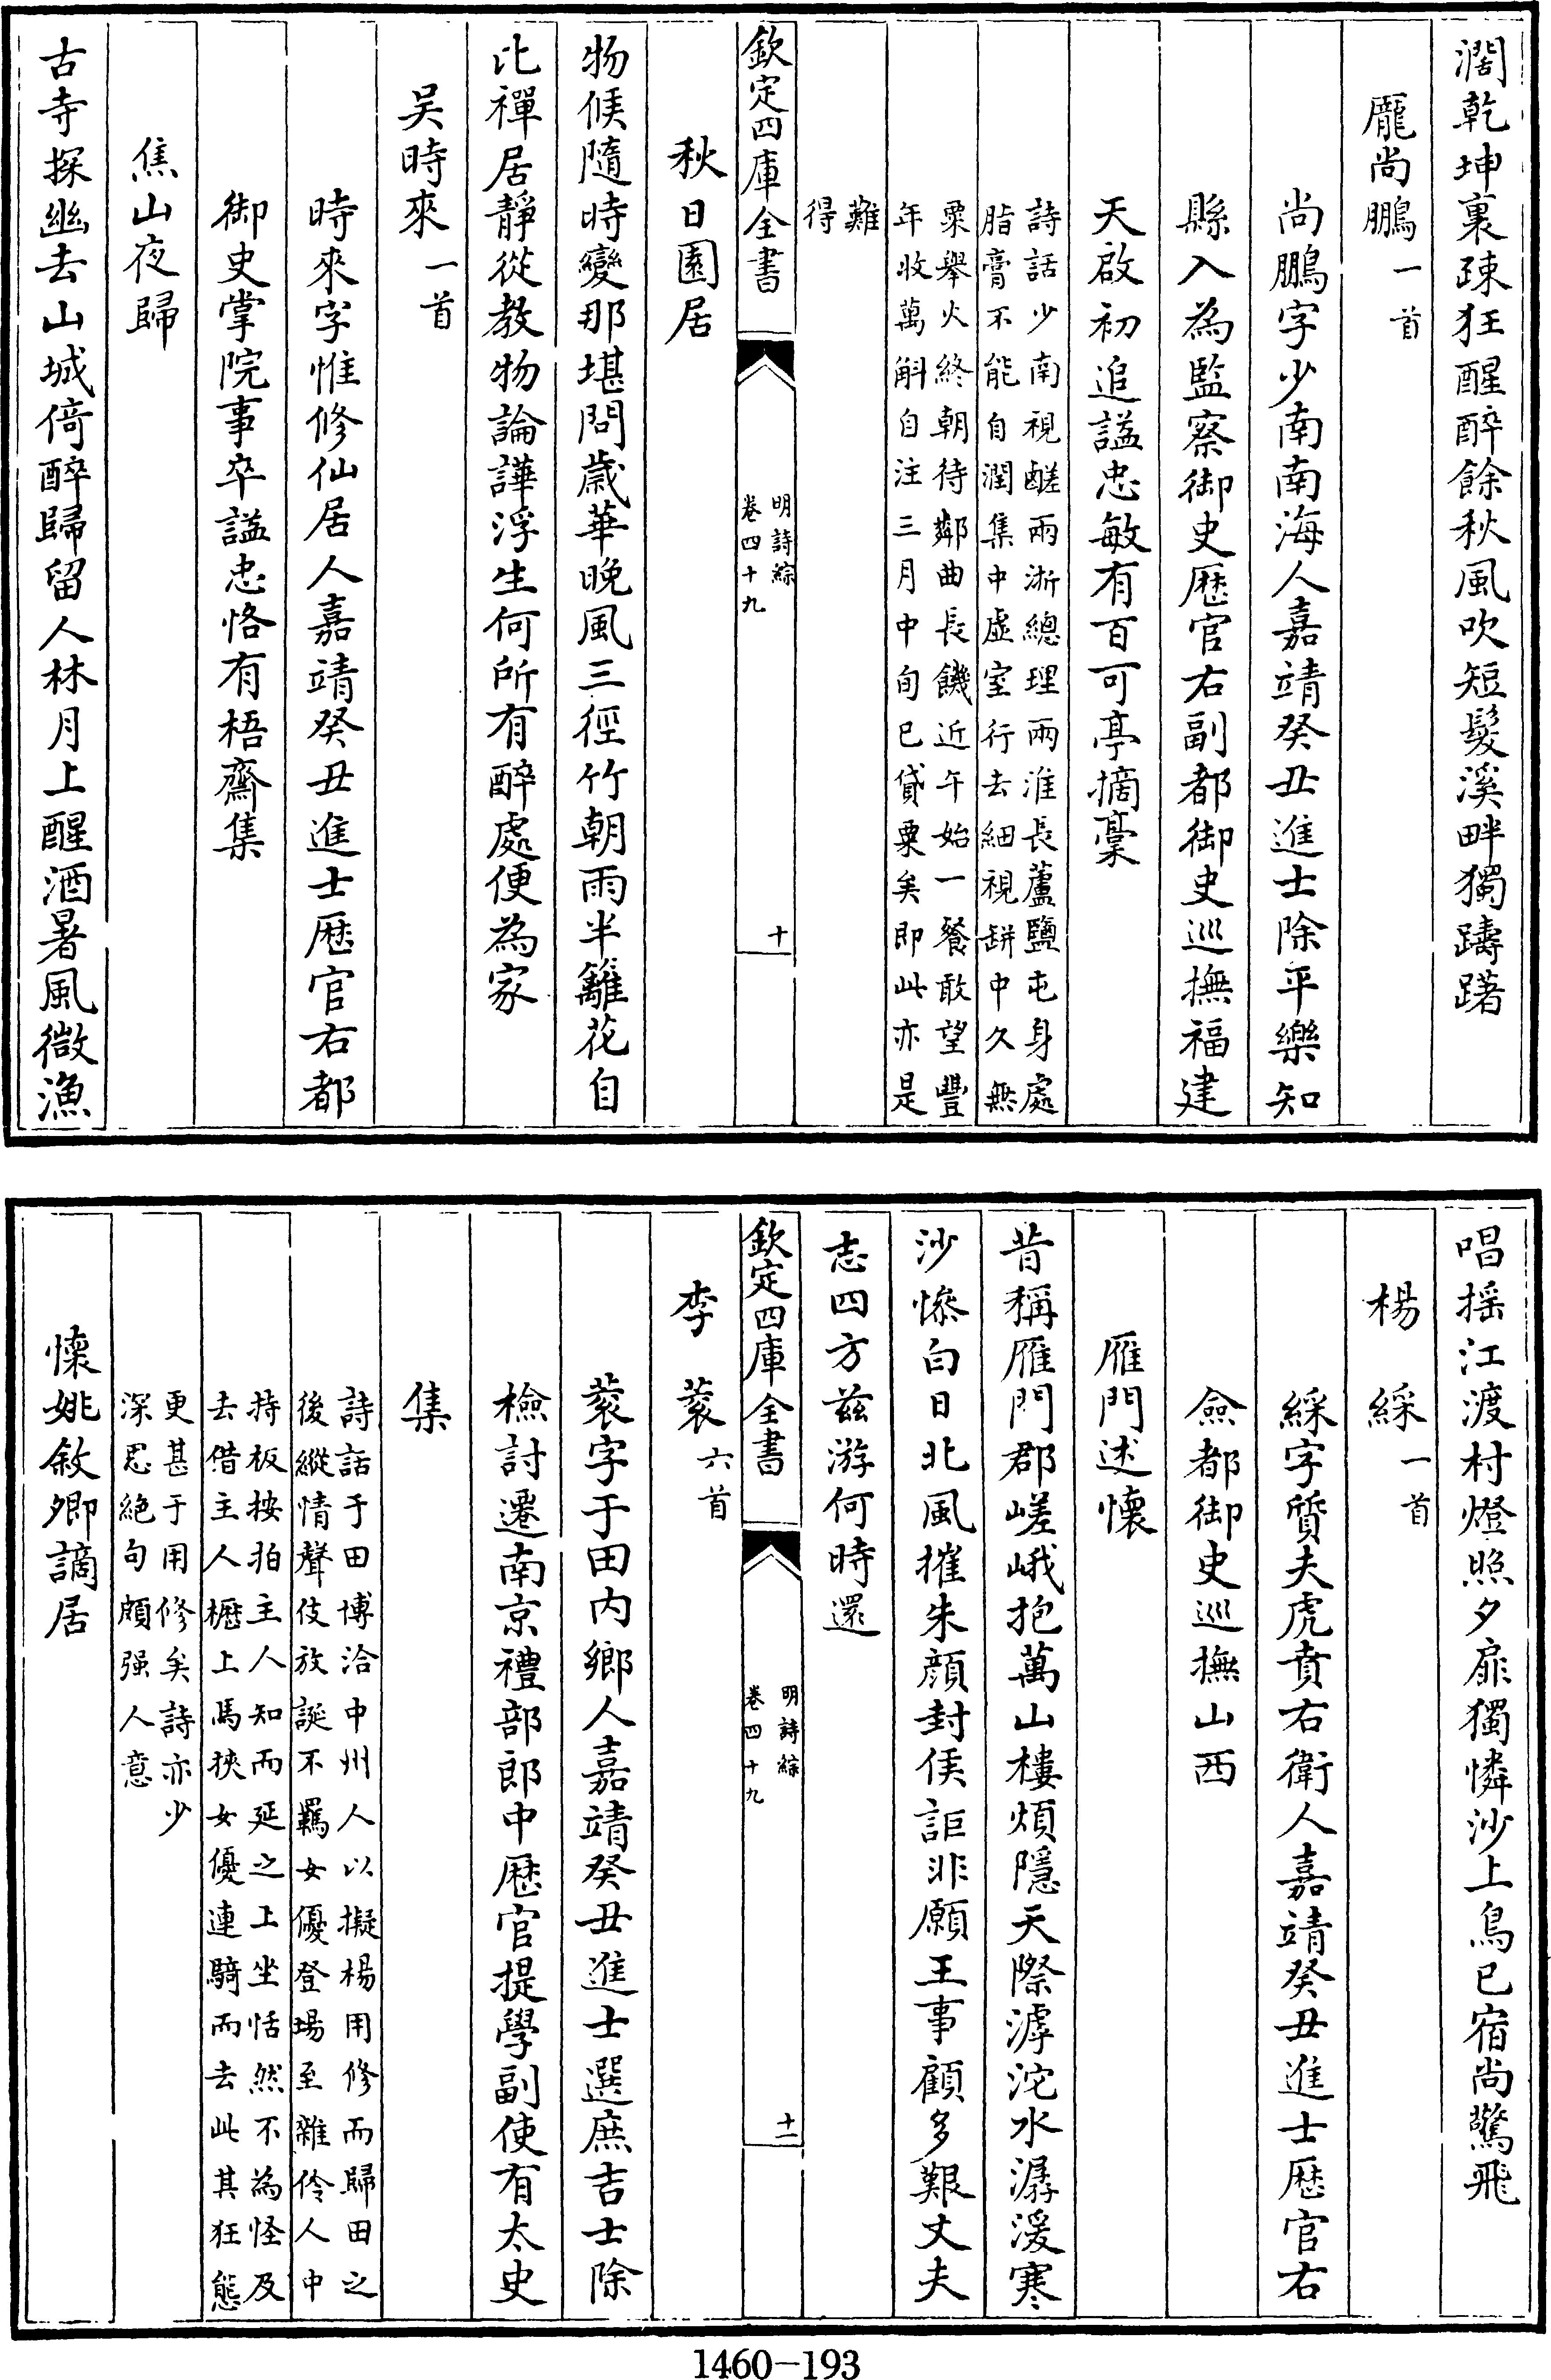 濶乾坤裏疎狂醒醉餘秋風吹短髮溪畔獨躊躇
龎尚鵬一首
尚鵬字少南南海人嘉靖癸丑進士除平樂知
縣入為監察御史歷官右副都御史巡撫福建
天啟初追諡忠敏有百可亭摘稾
詩話少南視鹺兩浙總理兩淮長蘆鹽屯身處
脂膏不能自潤集中虛室行去細視缾中久無
粟舉火終朝待鄰曲長饑近午始一餐敢望豐
年收萬斛自注三月中旬已貸粟矣即此亦是
難
得
欽定四庫全書
明詩綜
卷四十九
十
秋日園居
物候隨時變那堪問歲華晚風三徑竹朝雨半籬花自
比禪居靜從教物論譁浮生何所有醉處便為家
吴時來一首
時來字惟修仙居人嘉靖癸丑進士歷官右都
御史掌院事卒諡忠恪有梧齋集
焦山夜歸
古寺探幽去山城倚醉歸留人林月上醒酒暑風微漁
唱摇江渡村燈照夕扉獨憐沙上鳥已宿尚驚飛
楊綵一首
綵字質夫虎賁右衛人嘉靖癸丑進士歷官右
僉都御史巡撫山西
雁門述懷
昔稱雁門郡嵯峨抱萬山樓煩隱天際滹沱水潺湲寒
沙慘白日北風摧朱顏封侯詎非願王事顧多艱丈夫
志四方兹游何時還
欽定四庫全書
明詩綜
卷四十九
十一
李蓘六首
蓘字于田内鄉人嘉靖癸丑進士選庶吉士除
檢討遷南京禮部郎中歷官提學副使有太史
集
詩話于田博洽中州人以擬楊用修而歸田之
後縱情聲伎放誕不羈女優登場至雜伶人中
持板按拍主人知而延之上坐恬然不為怪及
去借主人櫪上馬挾女優連騎而去此其狂態
更甚于用修矣詩亦少
深思絶句頗强人意
懷姚敘卿謫居
1460-193